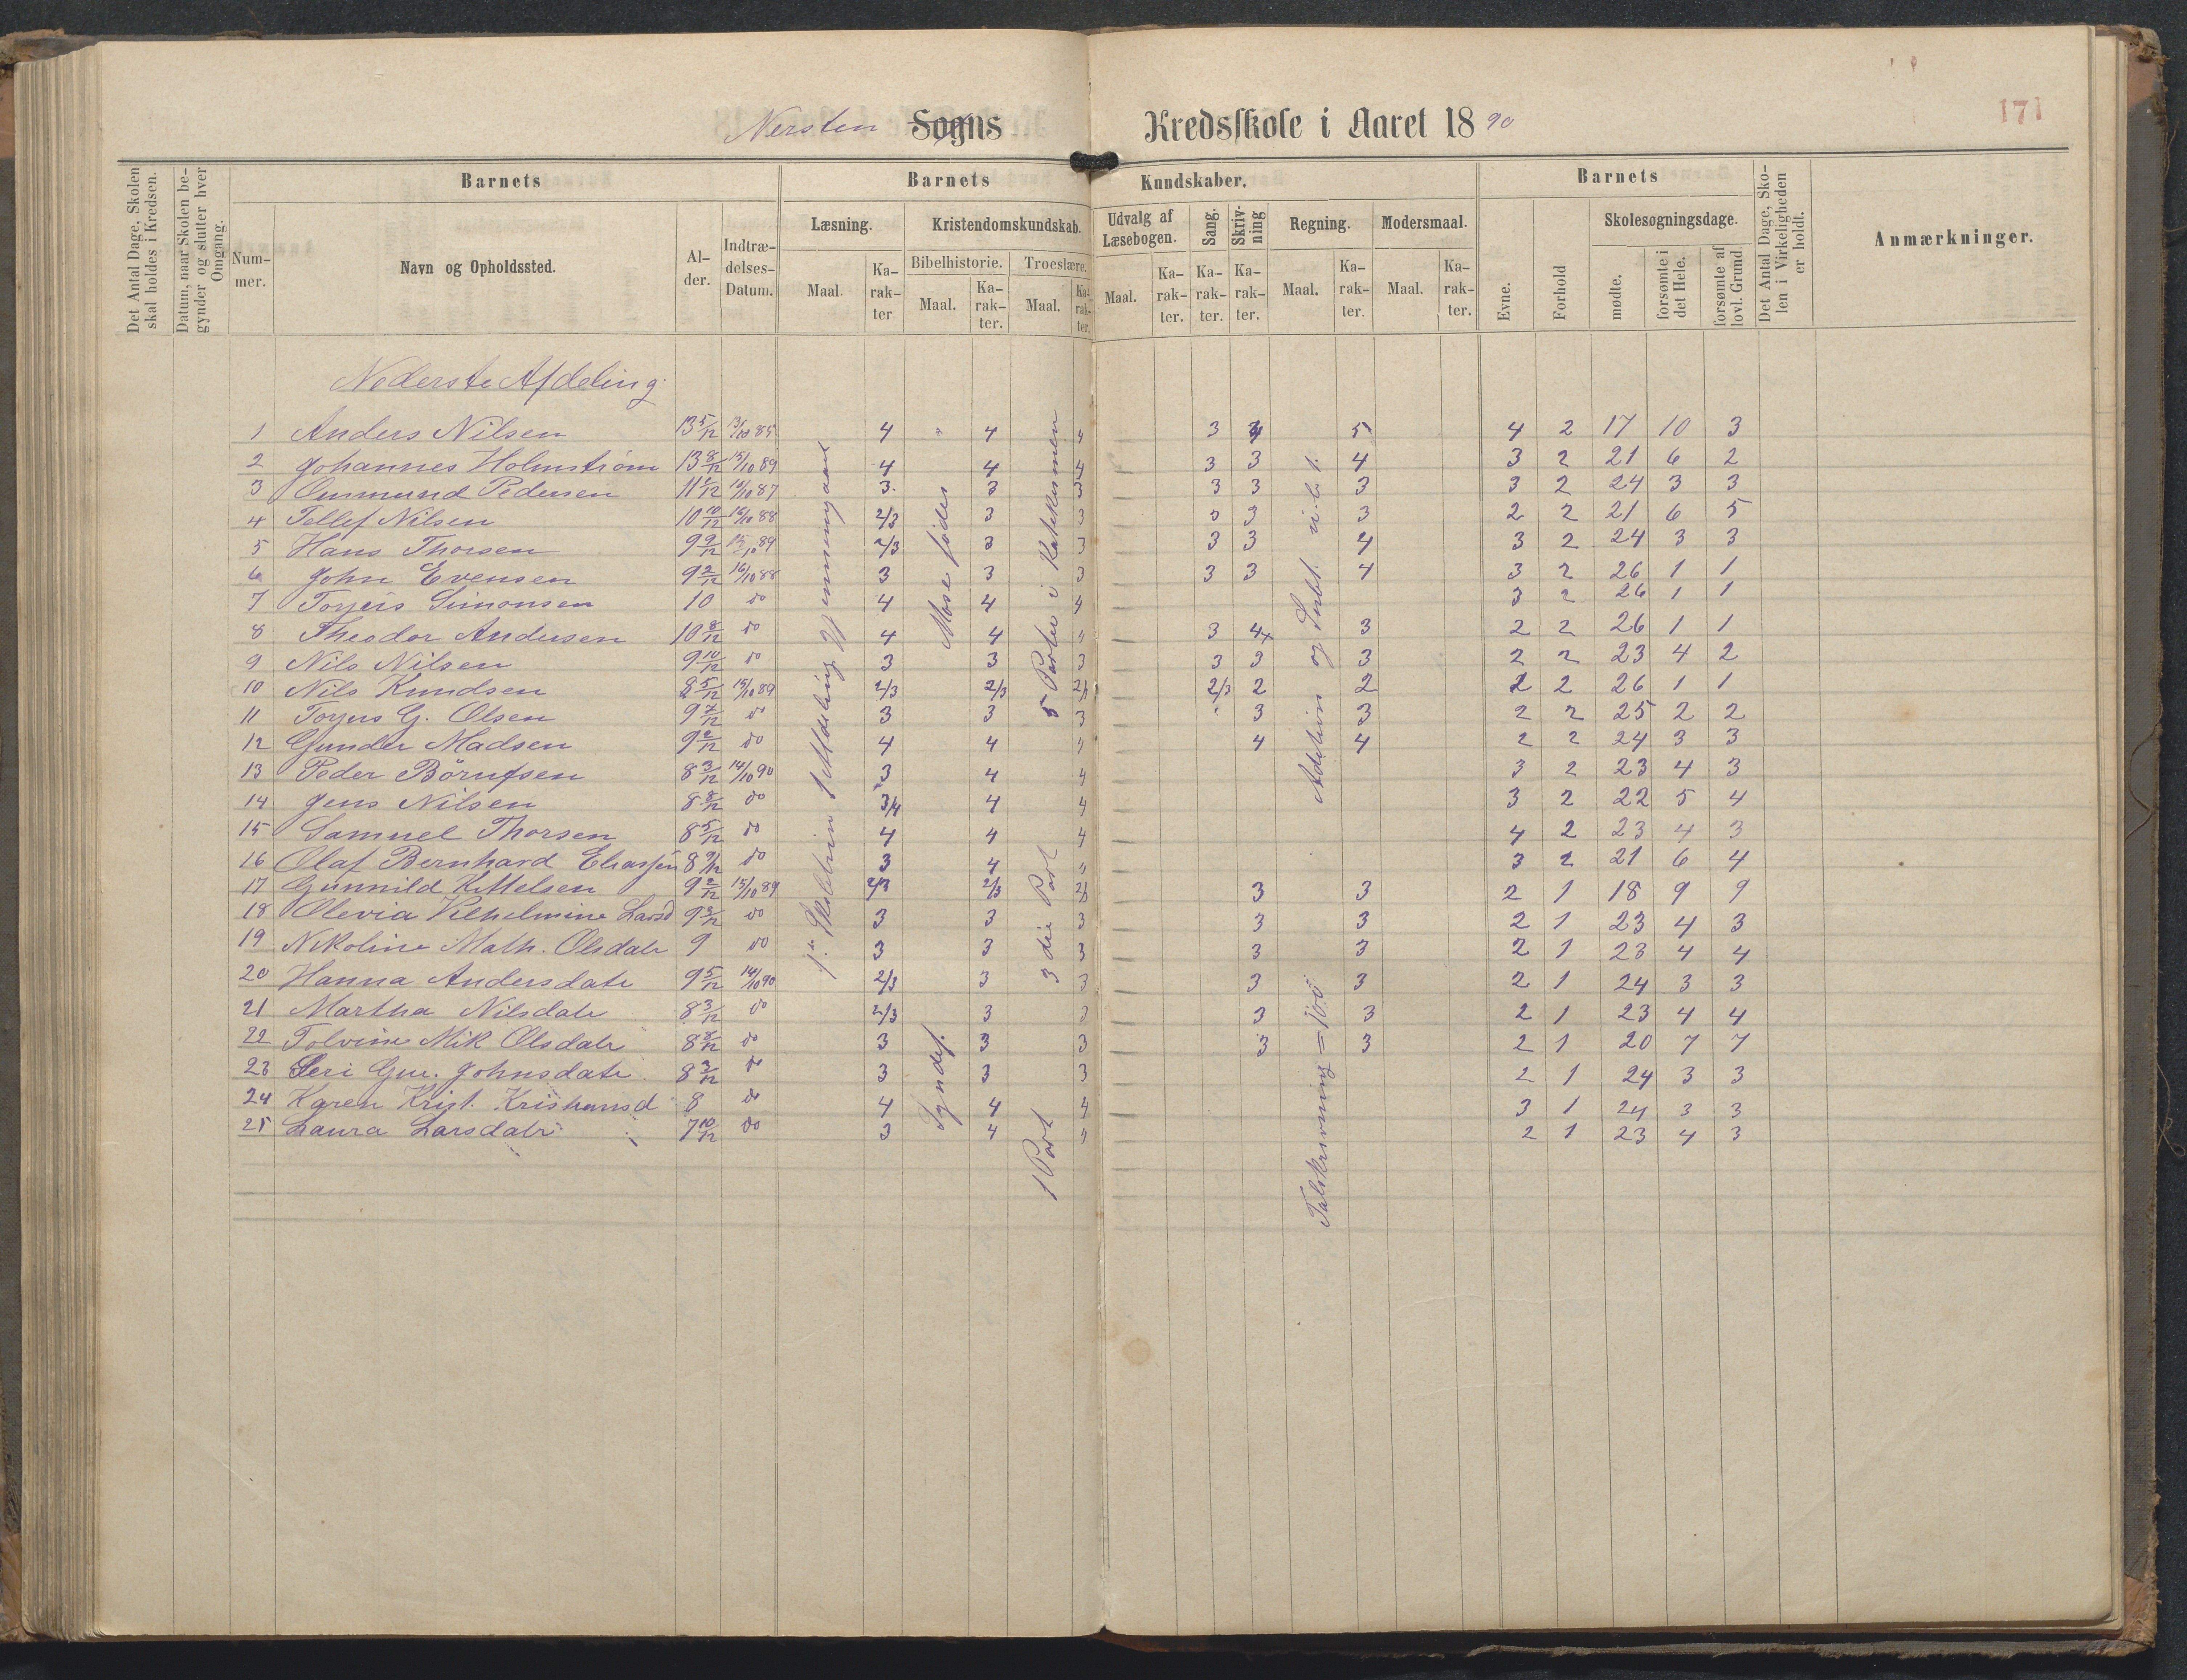 Nersten Sogns Kredsskole i Aaret 1890
171
Det Antal Dage, Skolen skal holdes i Kredsen.
Datum, naar Skolen begynder og slutter hver Omgang.
Barnets
Nummer.
Navn og Opholdssted.
Alder.
Indtrædelses-Datum.
Barnets Kundskaber.
Læsning.
Maal.
Karakter
Kristendomskundskab.
Bibelhistorie.
Maal.
Karakter.
Troeslære.
Maal.
Karakter.
Udvalg af Læsebogen.
Maal.
Karakter.
Sang.
Karakter.
Skrivning
Karakter.
Regning.
Maal.
Karakter.
Modersmaal.
Maal.
Karakter.
Barnets
Evne.
Forhold
Skolesøgningsdage.
mødte.
forsømte i det Hele.
forsømte af lovl. Grund
Det Antal Dage, Skolen i Virkeligheden er holdt.
Anmærkninger.
Nederste Afdeling
1 Anders Nilsen 13 5/12 13/10 85 4 4 4 3 4 5 4 2 17 10 3
2 Johannes Holmstrøm 13 8/12 15/10 89 4 4 4 3 3 4 3 2 21 6 2
3 Ommund Pedersen 3 3 3 3 3 3 3 2 24 3 3
4 Tellef Nilsen 10 10/12 16/10 88 2/3 3 3 3 3 3 2 2 21 6 5
5 Hans Thorsen 9 9/12 15/10 89 2/3 3 3 3 3 4 3 2 24 3 3
6 John Evensen 9 2/12 16/10 88 3 3 3 3 3 4 3 2 26 1 1
7 Torjeis Simonsen 10 do 4 4 4 3 2 26 1 1
8 Theodor Andersen 10 8/12 do 4 4 4 3 4x 3 2 2 26 1 1
9 Nils Nilsen 9 10/12 do 3 3 3 3 3 3 2 2 23 4 2
10 Nils Knudsen 8 5/12 15/10 89 2/3 2/3 2/3 2/3 2 2 2 2 26 1 1
11 Torjus G. Olsen 9 7/12 do 3 3 3 3 3 2 2 25 2 2
12 Gunder Madsen 9 2/12 do 4 4 4 4 4 2 2 24 3 3
13 Peder Børufsen 8 3/12 14/10 90 3 4 4 3 2 23 4 3
14 Jens Nilsen 8 8/12 do 3/4 4 4 3 2 22 5 4
15 Samuel Thorsen 8 5/12 do 4 4 4 4 2 23 4 3
16 Olaf Bernhard Eliassen 8 9/12 do 3 4 4 3 2 21 6 4
17 Gunnild Kittelsen 9 2/12 15/10 89 2/3 2/3 2/3 3 3 2 1 18 9 9
18 Olevia Vilhelmine Larsd 9 3/12 do 3 3 3 3 3 2 1 23 4 3
19 Nikoline Math. Olsdatr 9 do 3 3 3 3 3 2 1 23 4 4
20 Hanna Andersdatr 9 5/12 14/10 90 2/3 3 3 3 3 2 1 24 3 3
21 Martha Nilsdatr 8 3/12 do 2/3 3 3 3 3 2 1 23 4 4
22 Tolvine Mik Olsdatr 8 8/12 do 3 3 3 3 3 2 1 20 7 7
23 Seri Gur. Johnsdatr 8 3/12 do 3 3 3 2 1 24 3 3
24 Karen Krist. Kristiansd 8 do 4 4 4 3 1 24 3 3
25 Laura Larsdatr 7 10/12 do 3 4 4 2 1 23 4 3
Mose fødes
Syndef.
5 Parter i Katekismen
3die Part
1 Part
Addition og Subt.
Talskrivning = 100